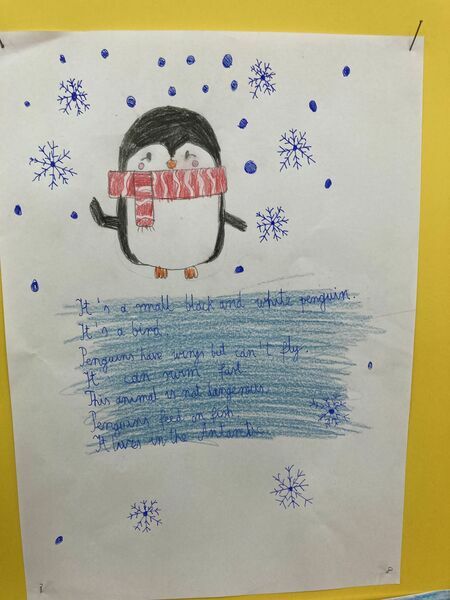 It's a small black and white penguin.
It's a bird.
Penguins have wings but can't fly.
It can swim fast.
This animal is not dangerous.
Penguins feed on fish.
It lives in the